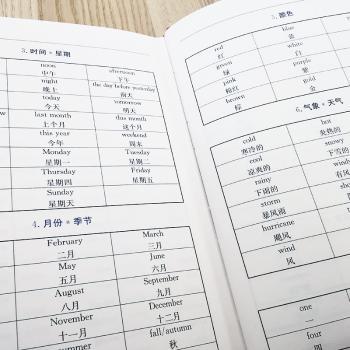 3. 时间 · 星期
noon
中午
afternoon
下午
night
晚上
the day before yesterday
前天
today
今天
tomorrow
明天
last month
上个月
this month
这个月
this year
今年
weekend
周末
Monday
星期一
Tuesday
星期二
Thursday
星期四
Friday
星期五
Sunday
星期天
4. 月份 · 季节
February
二月
March
三月
May
五月
June
六月
August
八月
September
九月
November
十一月
December
十二月
summer
fall/autumn
秋
5. 颜色
red
红
blue
蓝
green
绿
white
白
pink
粉红
purple
紫
brown
棕
gold
金
6. 气象 · 天气
cold
寒冷的
hot
炎热的
cool
凉爽的
snowy
下雪的
rainy
下雨的
storm
暴风雨
hurricane
飓风
wind
风
one
一
four
四